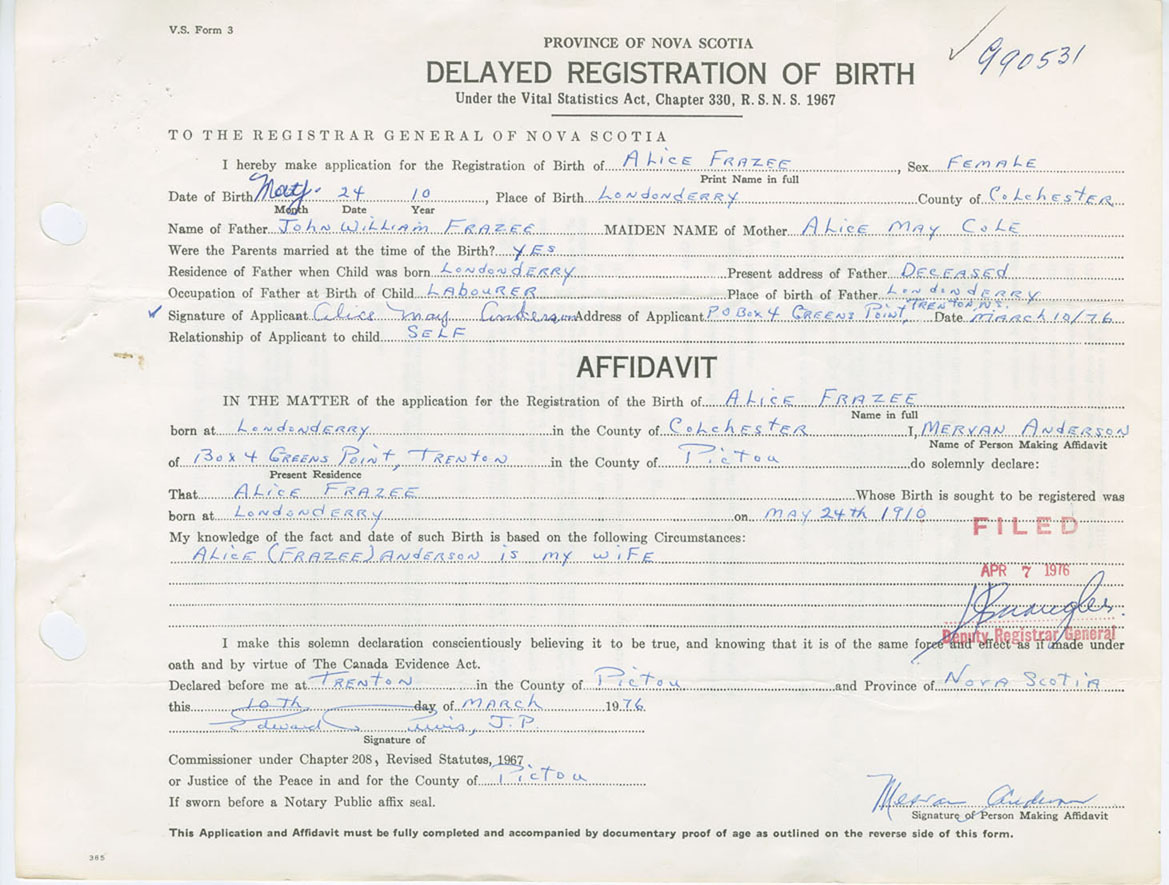 V.S. Form 3
990531
PROVINCE OF NOVA SCOTIA
DELAYED REGISTRATION OF BIRTH
Under the Vital Statistics Act, Chapter 330, R.S.N.S. 1967
TO THE REGISTRAR GENERAL OF NOVA SCOTIA
I hereby make application for the Registration of Birth of ALICE FRAZEE, Sex FEMALE
Print Name in full
Date of Birth May. 24 10, Place of Birth LONDONDERRY County of COLCHESTER
Month Date Year
Name of Father JOHN WILLIAM FRAZEE MAIDEN NAME of Mother ALICE MAY COLE
Were the Parents married at the time of the Birth? YES
Residence of Father when Child was born LONDONDERRY Present address of Father DECEASED
Occupation of Father at Birth of Child LABOURER Place of birth of Father LONDONDERRY
Signature of Applicant Alice May Anderson Address of Applicant PO BOX 4 GREENS POINT, TRENTON NS. Date MARCH 10/76
Relationship of Applicant to child SELF
AFFIDAVIT
IN THE MATTER of the application for the Registration of the Birth of ALICE FRAZEE
Name in full
born at LONDONDERRY in the County of COLCHESTER I, MERVAN ANDERSON
Name of Person Making Affidavit
of BOX 4 GREENS POINT, TRENTON in the County of PICTOU do solemnly declare:
Present Residence
That ALICE FRAZEE Whose Birth is sought to be registered was
born at LONDONDERRY on MAY 24th 1910
My knowledge of the fact and date of such Birth is based on the following Circumstances:
ALICE (FRAZEE) ANDERSON is my wiFE
FILED
APR 7 1976
Deputy Registrar General
I make this solemn declaration conscientiously believing it to be true, and knowing that it is of the same force and effect as if made under
oath and by virtue of The Canada Evidence Act.
Declared before me at TRENTON in the County of PICTOU and Province of NOVA SCOTIA
this 10TH day of MARCH 1976
Edward Lewis, J.P.
Signature of
Commissioner under Chapter 208, Revised Statutes, 1967
or Justice of the Peace in and for the County of PICTOU
If sworn before a Notary Public affix seal.
Mervan Anderson
Signature of Person Making Affidavit
This Application and Affidavit must be fully completed and accompanied by documentary proof of age as outlined on the reverse side of this form.
385